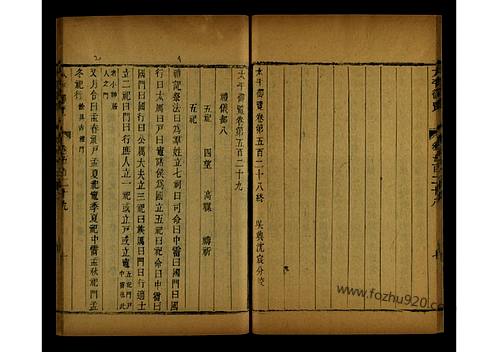 太平御覽卷第五百二十八終
吳興沈宸分校
太平御覽卷第五百二十九
禮儀部八
五祀 四望 高禖 禱祈
五祀
禮記祭法曰爲羣姓立七祀曰司命曰中霤曰國門曰國
行曰大厲曰戶曰竈諸侯爲國立五祀曰司命曰中霤曰
國門曰國行曰公厲大夫立三祀曰族厲曰門曰行適士
立二祀曰門曰行庶人立一祀或立戶或立竈
又月令曰孟春祀戶孟夏祀竈季夏祀中霤孟秋祀門孟
冬祀行
www.fozhu920.com